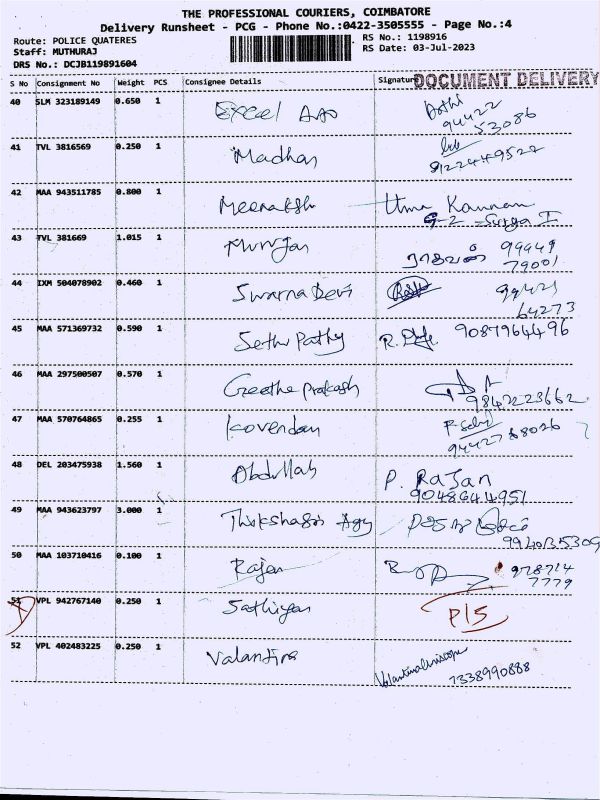 THE PROFESSIONAL COURIERS, COIMBATORE
Delivery Runsheet - PCG - Phone No.:0422-3505555 - Page No.:4
Route: POLICE QUATERES
RS No.: 1198916
Staff: MUTHURAJ
RS Date: 03-Jul-2023
DRS No.: DCJB119891604
S No Consignment No Weight PCS Consignee Details Signature DOCUMENT DELIVERY
40 SLM 323189149 0.650 1 Excel
94422
53086
41 TVL 3816569 0.250 1 Madhan
9122449522
42 MAA 943511785 0.800 1 Meenaksh Uma Kannan
G-2 Surya I
43 TVL 381669 1.015 1 Murugan 99449
79001
44 IXM 504078902 0.460 1 Swarna Devi 99421
64273
45 MAA 571369732 0.590 1 Sethu Pathy R. 9087964496
46 MAA 297500507 0.570 1 Geetha prakash
9842223662
47 MAA 570764865 0.255 1 Kovendan
9442768026
48 DEL 203475938 1.560 1 Abdullah P. RaJan
9048644951
49 MAA 943623797 3.000 1
9940135309
50 MAA 103710416 0.100 1 Rajan 978714
7779
51 VPL 942767140 0.250 1 Sathiyan P/S
52 VPL 402483225 0.250 1 Valantina
7338990888